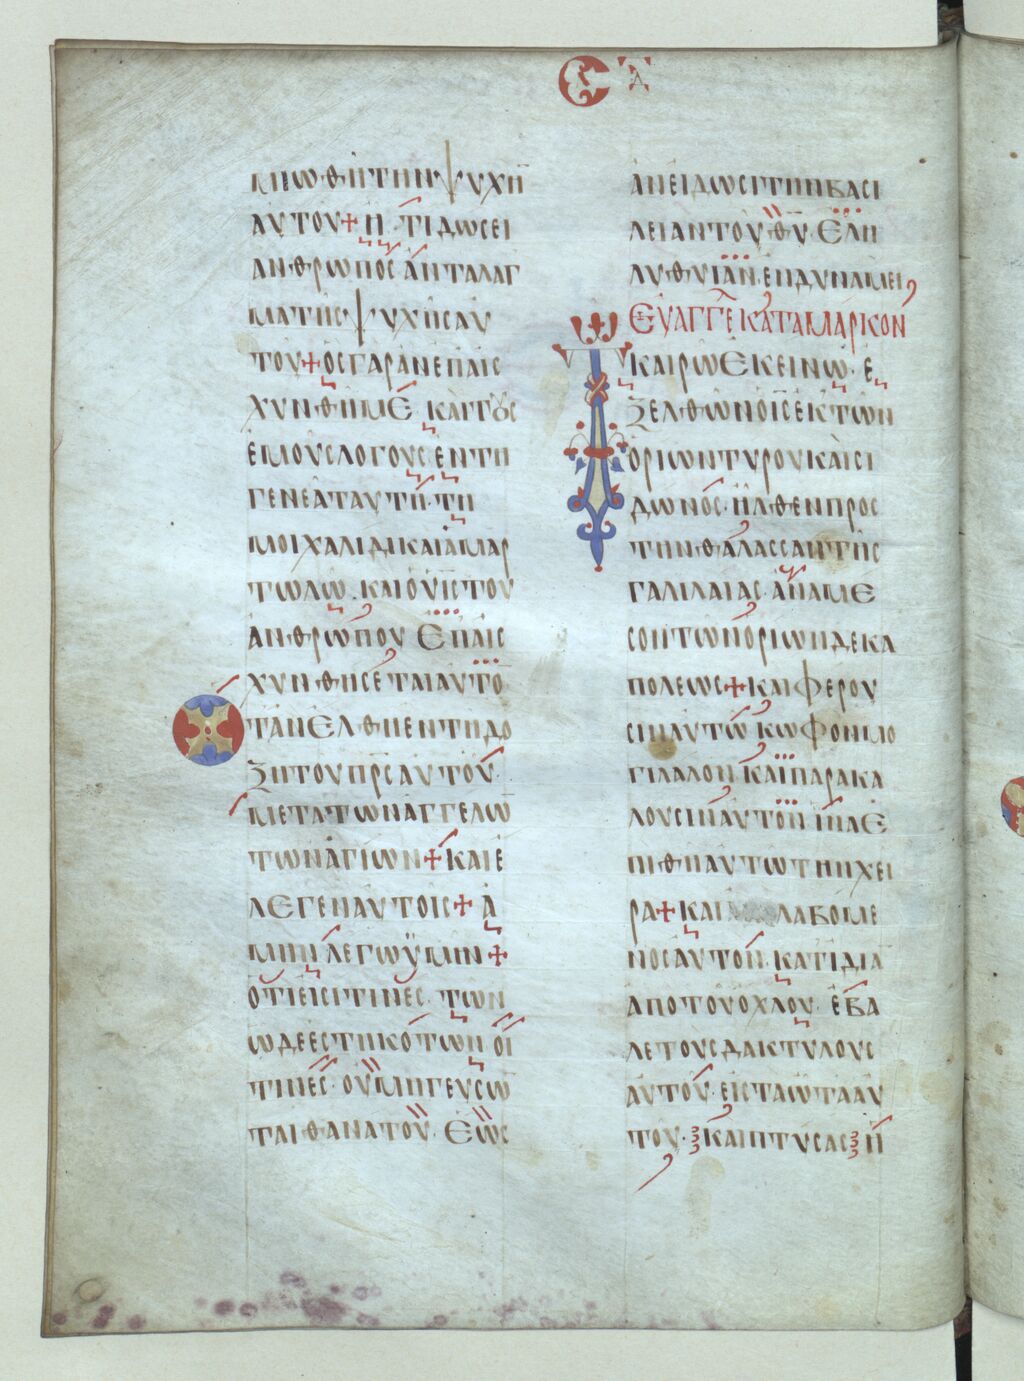 Ϲ Τ Δ
ΜΙΩΘΗΤΗΝΨΥΧΗ̅
ΑΥΤΟΥ+Η ΤΙΔΩϹΕΙ
ΑΝΘΡΩΠΟϹΑΝΤΑΛΑΓ
ΜΑΤΗϹΨΥΧΗϹΑΥ
ΤΟΥ+ΟϹΓΑΡΑΝΕΠΑΙϹ
ΧΥΝΘΗΜΕ·ΚΑΙΤΟΥϹ
ΕΜΟΥϹΛΟΓΟΥϹΕΝΤΗ
ΓΕΝΕΑΤΑΥΤΗ·ΤΗ
ΜΟΙΧΑΛΙΔΙΚΑΙΑΜΑΡ
ΤΩΛΩ·ΚΑΙΟΥΙ̅ϹΤΟΥ
ΑΝΘΡΩΠΟΥ ΕΠΑΙϹ
ΧΥΝΘΗϹΕΤΑΙΑΥΤΟ̅
ΤΑΝΕΛΘΗΕΝΤΗΔΟ
ΞΗΤΟΥΠΡ̅ϹΑΥΤΟΥ
ΜΕΤΑΤΩΝΑΓΓΕΛΩ̅
ΤΩΝΑΓΙΩΝ+ΚΑΙΕ
ΛΕΓΕΝΑΥΤΟΙϹ+Α
ΜΗΝΛΕΓΩΫΜΙΝ+
ΟΤΙΕΙϹΙΤΙΝΕϹ·ΤΩΝ
ΩΔΕΕϹΤΗΚΟΤΩΝΟΙ
ΤΙΝΕϹ·ΟΥΜΗΓΕΥϹΩ
ΤΑΙΘΑΝΑΤΟΥ·ΕΩϹ
ΑΝΕΙΔΩϹΙΤΗΝΒΑϹΙ
ΛΕΙΑΝΤΟΥΘ̅Υ̅ ΕΛΗ
ΛΥΘΥΙΑΝ·ΕΝΔΥΝΑΜΕΙ
ΕΥΑΓΓΕ ΚΑΤΑΜΑΡΚΟΝ
ΤΚΑΙΡΩΕΚΕΙΝΩ·Ε
ΞΕΛΘΩΝΟΙ̅ϹΕΚΤΩΝ
ΟΡΙΩΝΤΥΡΟΥΚΑΙϹΙ
ΔΩΝΟϹ·ΗΛΘΕΝΠΡΟϹ
ΤΗΝΘΑΛΑϹϹΑΝΤΗϹ
ΓΑΛΙΛΑΙΑϹ·ΑΝΑΜΕ
ϹΟΝΤΩΝΟΡΙΩΝΔΕΚΑ
ΠΟΛΕΩϹ+ΚΑΙΦΕΡΟΥ
ϹΙΝΑΥΤΩ ΚΩΦΟΝΜΟ
ΓΙΛΑΛΟΝ ΚΑΙΠΑΡΑΚΑ
ΛΟΥϹΙΝΑΥΤΟΝ ΙΝΑΕ
ΠΙΘΗΑΥΤΩΤΗΝΧΕΙ
ΡΑ+ΚΑΙ ΛΑΒΟΜΕ
ΝΟϹΑΥΤΟΝ·ΚΑΤΙΔΙΑ
ΑΠΟΤΟΥΟΧΛΟΥ·ΕΒΑ
ΛΕΤΟΥϹΔΑΚΤΥΛΟΥϹ
ΑΥΤΟΥ·ΕΙϹΤΑΩΤΑΑΥ
ΤΟΥ·ΚΑΙΠΤΥϹΑϹΗ